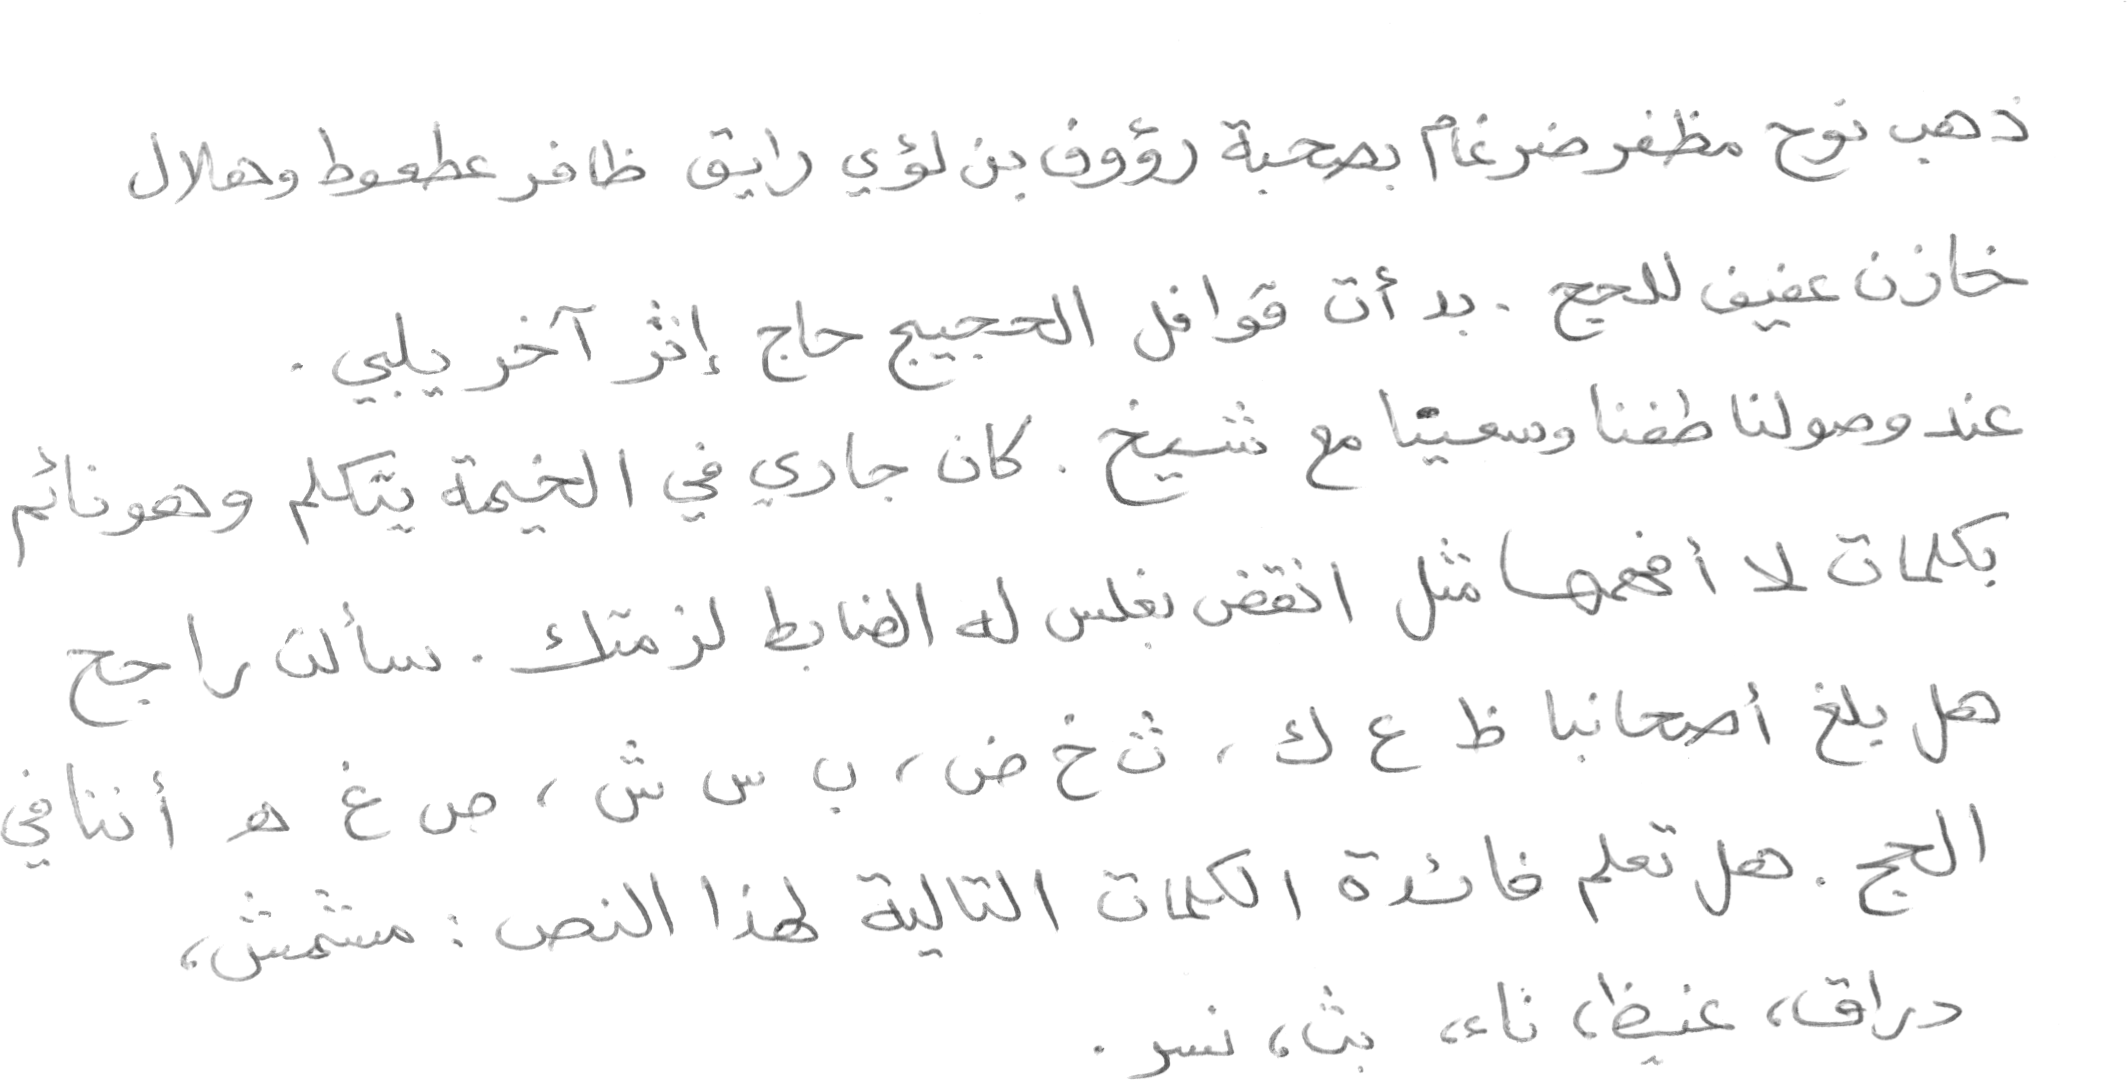 ذهب نوح مظفر ضرغام بصحبة رؤوف بن لؤي رايق ظافر عطعوط وهلال
خازن عفيف للحج . بدأت قوافل الحجيج حاج إثر آخر يلبي .
عند وصولنا طفنا وسعينا مع شيخ . كان جاري في الخيمة يتكلم وهو نائم
بكلمات لا أفهمها مثل انقض بغلس له الضابط لزمتك . سألت راجح
هل بلغ أصحابنا ظ ع ك ، ث خ ض ، ب س ش ، ص غ هـ أننا في
الحج . هل تعلم فائدة الكلمات التالية لهذا النص : مشمش ،
دراق ، غيظ ، ناء ، بث ، نسر .